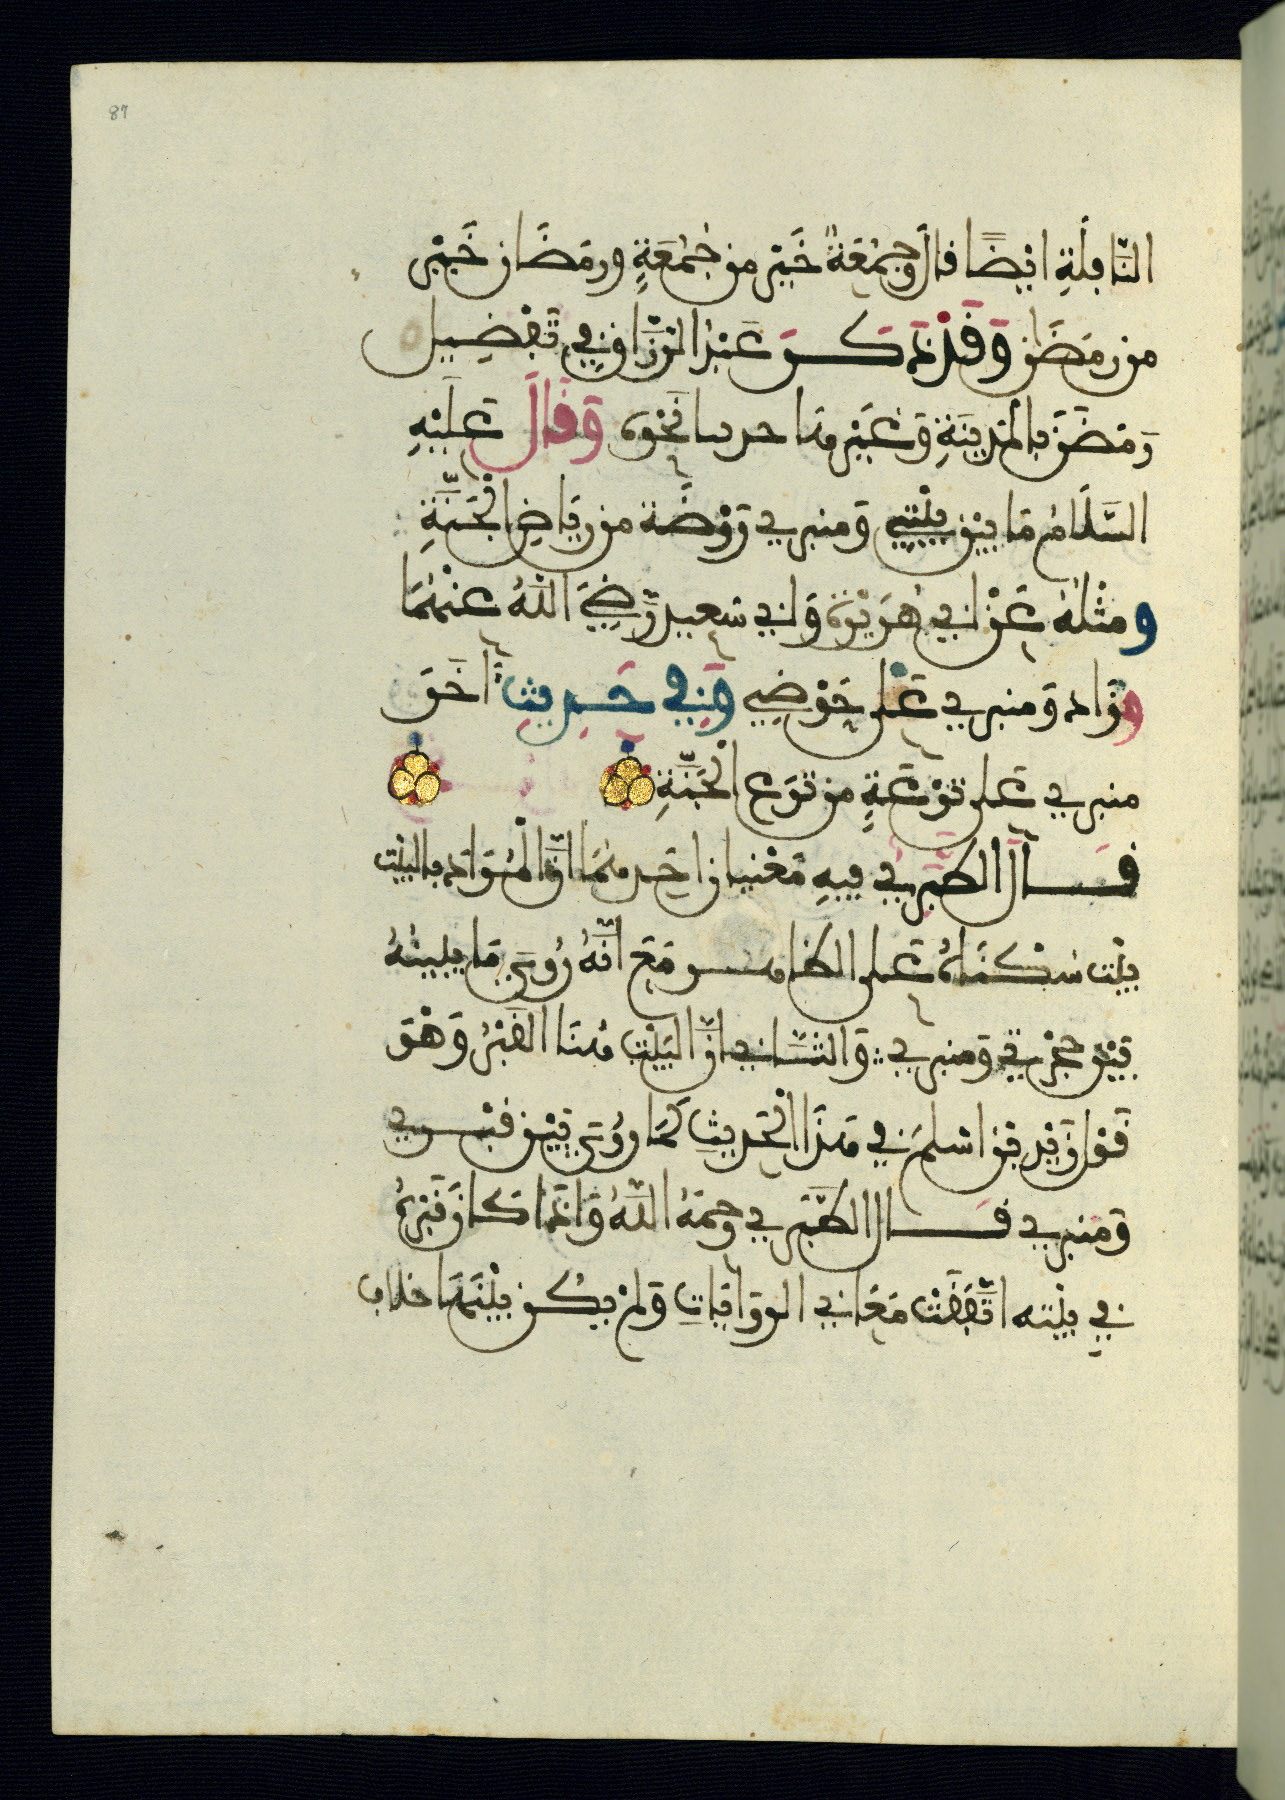 87
النَّافِلَةِ ايْضًا قالَ وجُمُعَةٌ خَيْر من جُمُعَةٍ ورمَضَان خَيْر
من رمَضَٰن وَقَدْ ذَكَرَ عَبْدُ الرَّزَّاق فِي تَفْضِيل
رَمَضَٰنَ بالمَدِينَةِ وَغَيْرِهَا حديثا نَحْوَه وَقَالَ عَلَيْهِ
السَّلَامُ مَا بَيْنَ بَيْتِي وَمنبرِي رَوْضَة من رِيَاضِ الْجَنَّةِ
ومثْلُهُ عَنْ ابِي هُرَيْرَةَ وَابِي سَعِيد رَّضِيَ اللَّهُ عَنْهُمَا
وَزَاد وَمنبرِي عَلَى حَوْضِي وَفِي حَدِيثٍ اخَرَ
منبرِي عَلَى تُرْعَةٍ من تُرَعِ الْجَنَّةِ
قَالَ الطَّبَرِي فِيهِ مَعْنيان احَدهُمَا انَّ الْمُرَادَ بالبَيْت
بَيْت سُكْنَاهُ عَلَى الظاهر مَعَ انَّهُ رُوِيَ مَا يبينُهُ
بَيْنَ حجْرَتِي وَمنبرِي وَالثَّانِي انَّ البَيْتَ هُنَا القَبْرُ وَهْوَ
قَوْل زَيْد بْن اسْلَمَ فِي هَذَا الْحَدِيثِ كَمَا رُوِيَ بَيْنَ قَبْرِي
وَمنبرِي قَالَ الطَّبَرِي رحِمَهُ اللَّهُ وَاذَا كَانَ قَبْرُهُ
فِي بَيْته اتَّفَقَتْ مَعَانِي الروَايَاتِ وَلَمْ يكُن بَيْنَهَا خلاف